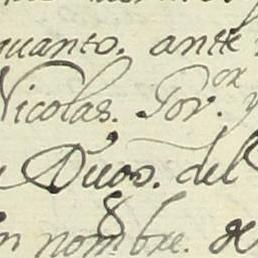 quanto. ante
Nicolas. Gov.or y
Duos. del
en nombre. de